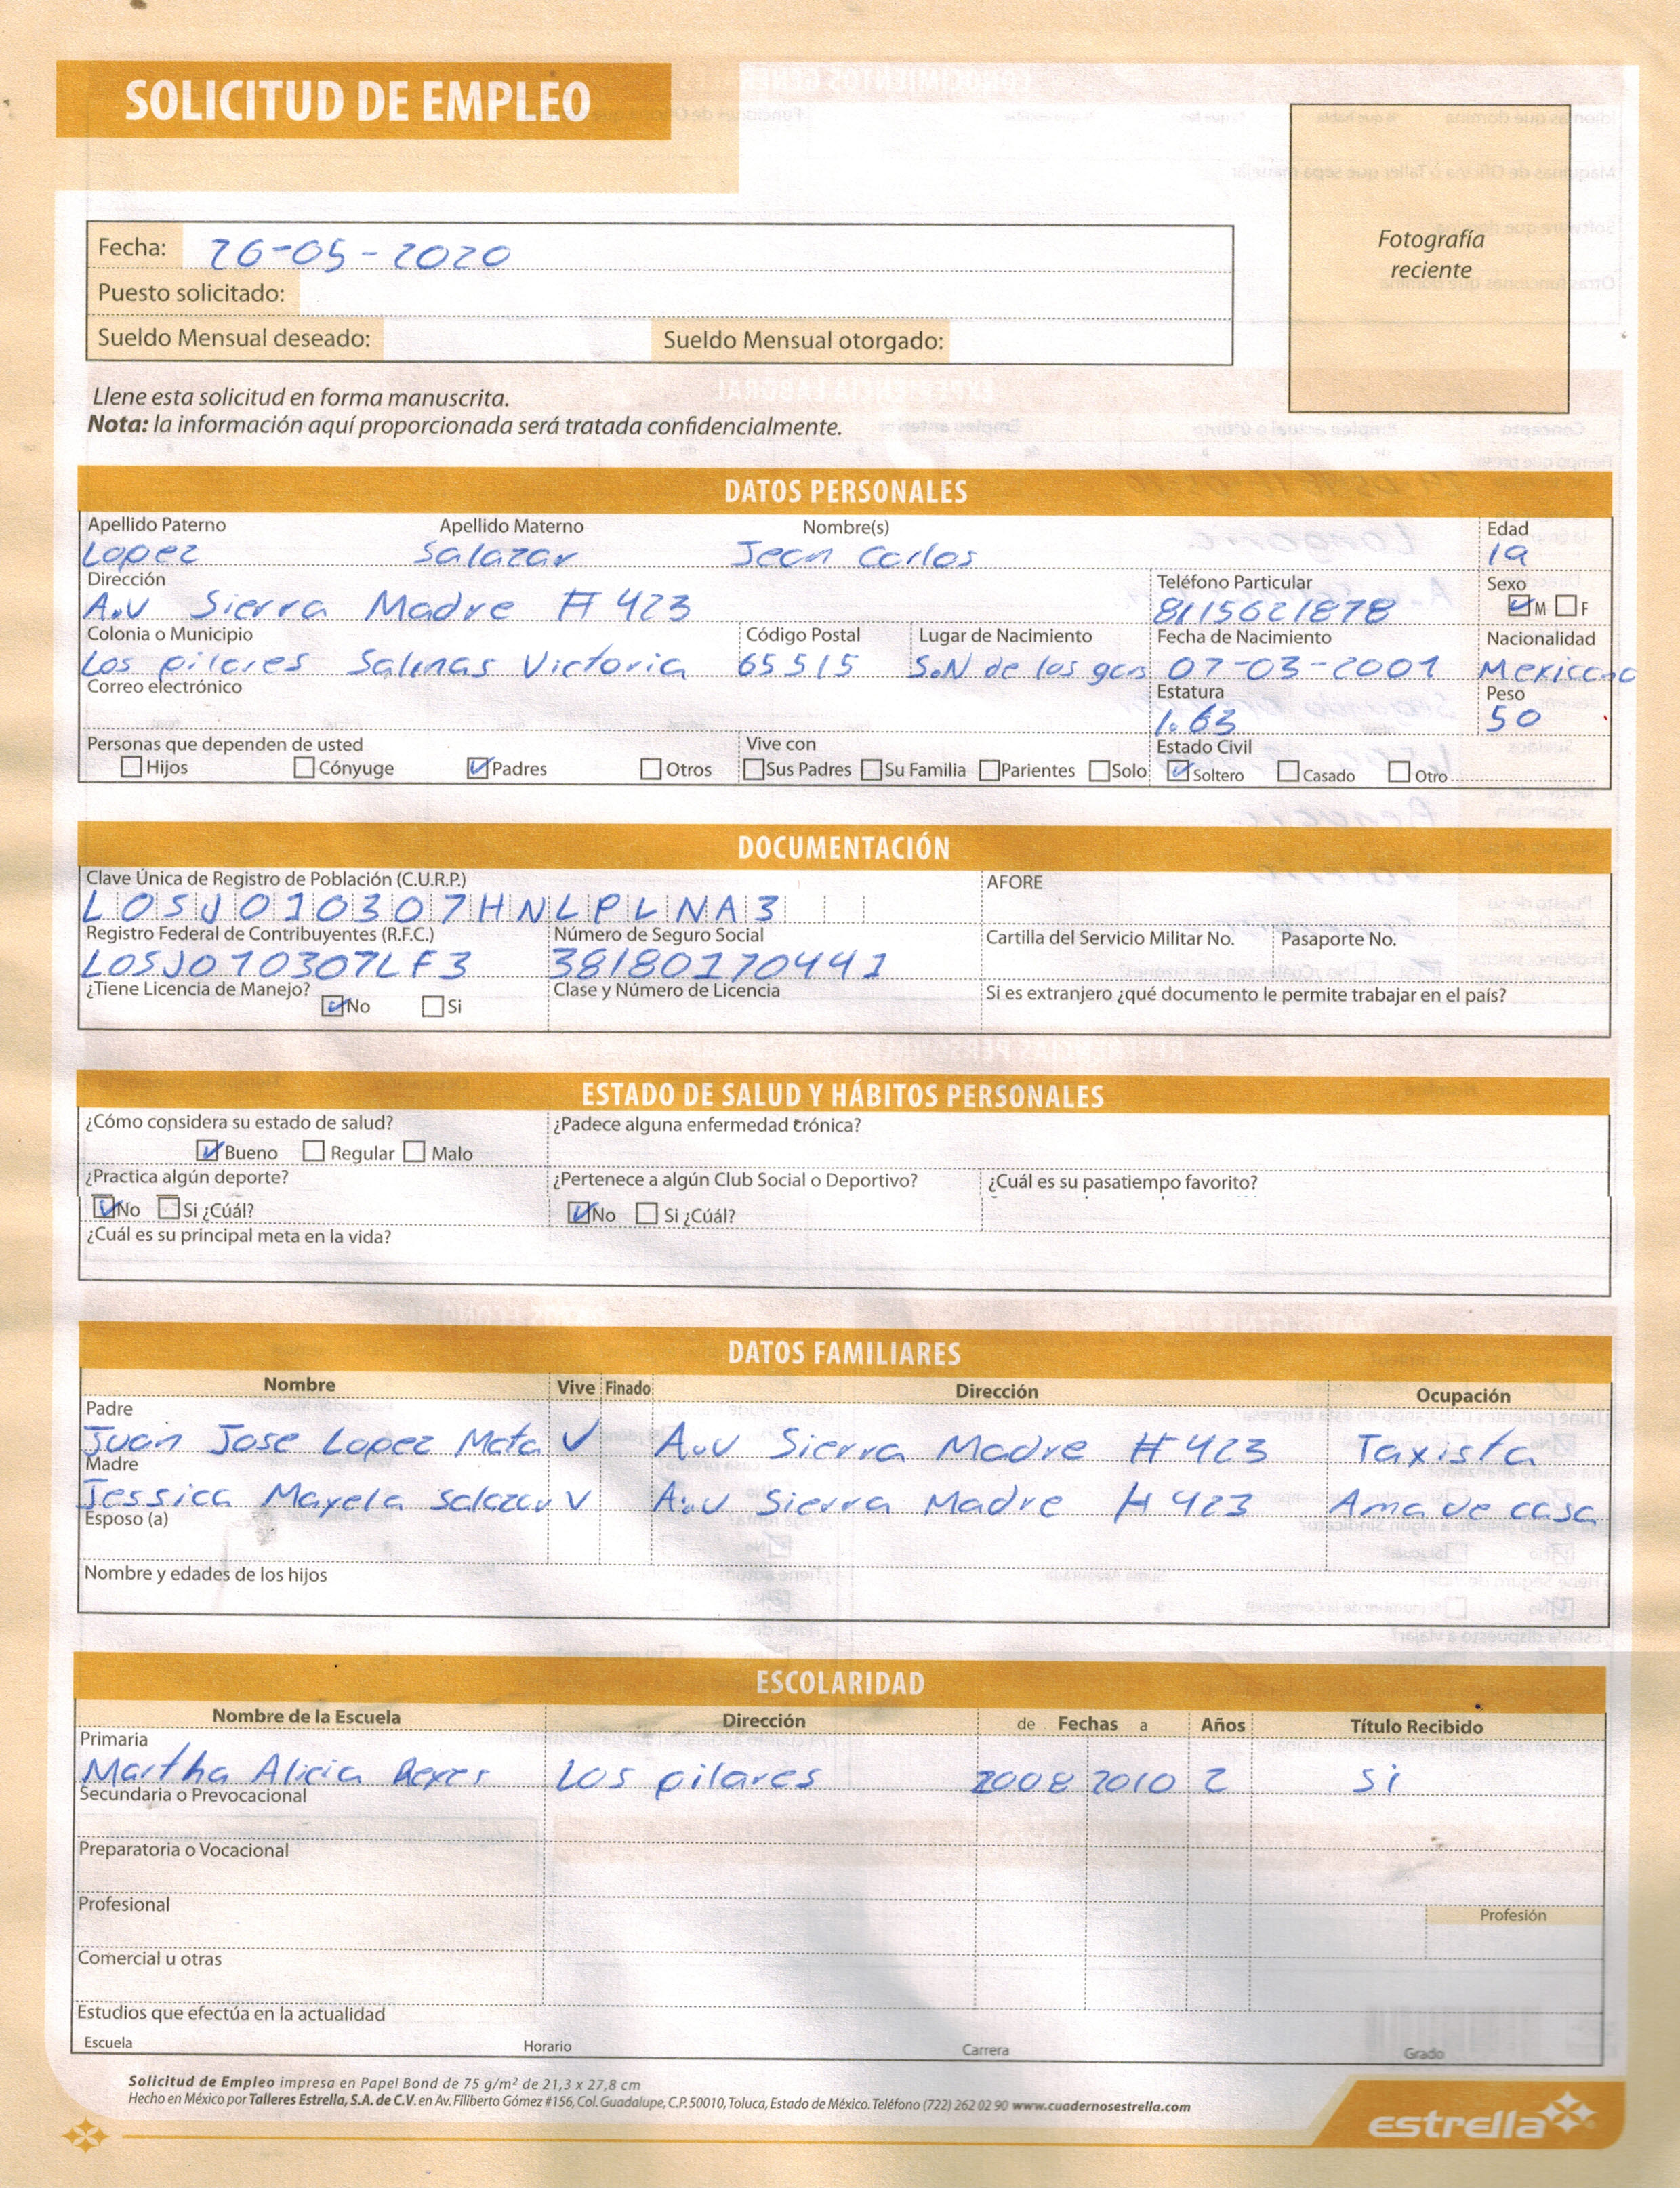 SOLICITUD DE EMPLEO
Fotografía
reciente
Fecha: 26-05-2020
Puesto solicitado:
Sueldo Mensual deseado: Sueldo Mensual otorgado:
Llene esta solicitud en forma manuscrita.
Nota: la información aquí proporcionada será tratada confidencialmente.
DATOS PERSONALES
Apellido Paterno Apellido Materno Nombre(s) Edad
Lopez Salazar Jean Carlos 19
Dirección Teléfono Particular Sexo
A.v Sierra Madre # 423 8115621878 M F
Colonia o Municipio Código Postal Lugar de Nacimiento Fecha de Nacimiento Nacionalidad
Los pilares Salinas Victoria 65515 S.N de los gas 07-03-2001 Mexicano
Correo electrónico Estatura Peso
1.63 50
Personas que dependen de usted Vive con Estado Civil
Hijos Cónyuge Padres Otros Sus Padres Su Familia Parientes Solo Soltero Casado Otro
DOCUMENTACIÓN
Clave Única de Registro de Población (C.U.R.P.) AFORE
LOSJ010307HNLPLNA3
Registro Federal de Contribuyentes (R.F.C.) Número de Seguro Social Cartilla del Servicio Militar No. Pasaporte No.
LOSJ010307LF3 38180170441
¿Tiene Licencia de Manejo? Clase y Número de Licencia Si es extranjero ¿qué documento le permite trabajar en el país?
No Si
ESTADO DE SALUD Y HÁBITOS PERSONALES
¿Cómo considera su estado de salud? ¿Padece alguna enfermedad crónica?
Bueno Regular Malo
¿Practica algún deporte? ¿Pertenece a algún Club Social o Deportivo? ¿Cuál es su pasatiempo favorito?
No Si ¿Cúál? No Si ¿Cúál?
¿Cuál es su principal meta en la vida?
DATOS FAMILIARES
Nombre Vive Finado Dirección Ocupación
Padre
Juan Jose Lopez Mata V A.v Sierra Madre # 423 Taxista
Madre
Jessica Mayela Salazar V A.v Sierra Madre # 423 Ama de casa
Esposo (a)
Nombre y edades de los hijos
ESCOLARIDAD
Nombre de la Escuela Dirección de Fechas a Años Título Recibido
Primaria
Martha Alicia Reyes Los pilares 2008 2010 2 Si
Secundaria o Prevocacional
Preparatoria o Vocacional
Profesional
Profesión
Comercial u otras
Estudios que efectúa en la actualidad
Escuela Horario Carrera Grado
Solicitud de Empleo impresa en Papel Bond de 75 g/m² de 21,3 x 27,8 cm
Hecho en México por Talleres Estrella, S.A. de C.V. en Av. Filiberto Gómez #156, Col. Guadalupe, C.P. 50010, Toluca, Estado de México. Teléfono (722) 262 02 90 www.cuadernosestrella.com
estrella